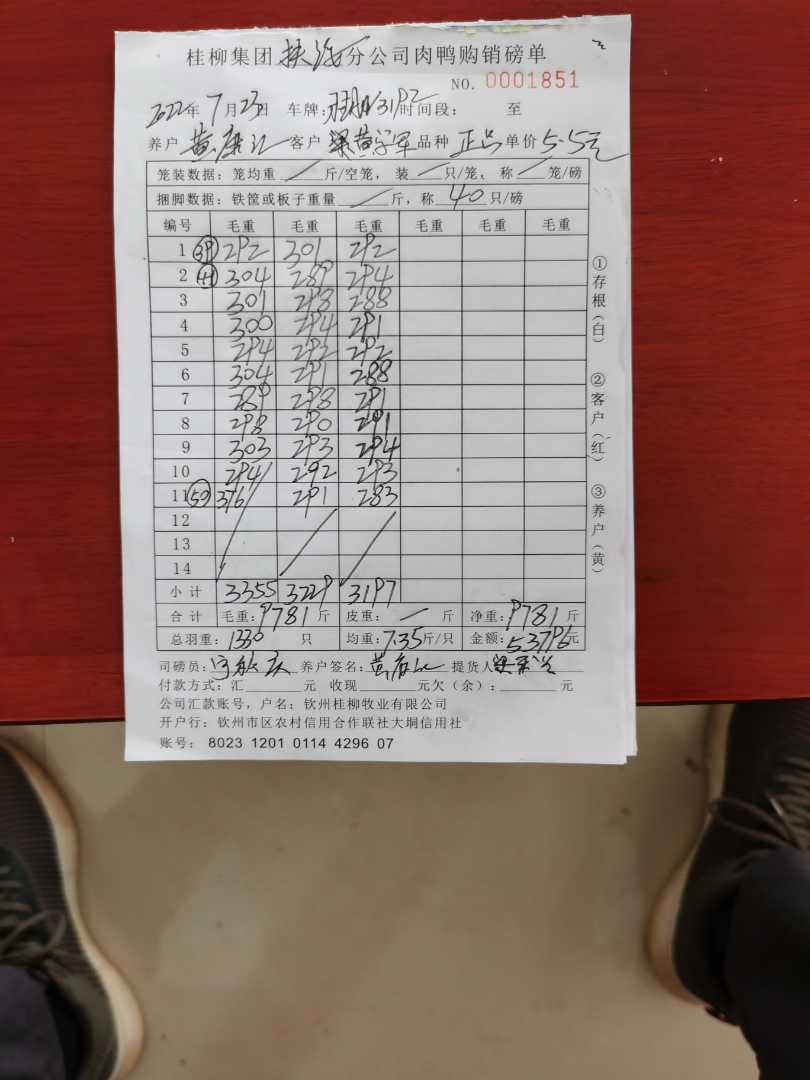 桂柳集团 分公司肉鸭购销磅单
NO. 0001851
2022年7月23日 车牌: 3192 时间段: 至
养户 黄 客户 黄 品种 正品 单价 5.5元
笼装数据: 笼均重 / 斤/空笼, 装 / 只/笼, 称 / 笼/磅
捆脚数据: 铁筐或板子重量 / 斤, 称 40 只/磅
编号 毛重 毛重 毛重 毛重 毛重 毛重
1 39 292 301 292
2 41 304 289 294
3 301 298 288
4 300 294 291
5 294 292 292
6 304 291 288
7 289 298 291
8 298 290 291
9 303 293 294
10 294 292 293
11 50 376 291 283
12
13
14
小计 3355 3229 3197
合计 毛重: 9781 斤 皮重: — 斤 净重: 9781 斤
总羽重: 1330 只 均重: 7.35 斤/只 金额: 53796元
司磅员: 养户签名: 黄 提货人
付款方式: 汇 元 收现 元欠(余): 元
公司汇款账号, 户名: 钦州桂柳牧业有限公司
开户行: 钦州市区农村信用合作联社大垌信用社
账号: 8023 1201 0114 4296 07
①存根(白)
②客户(红)
③养户(黄)